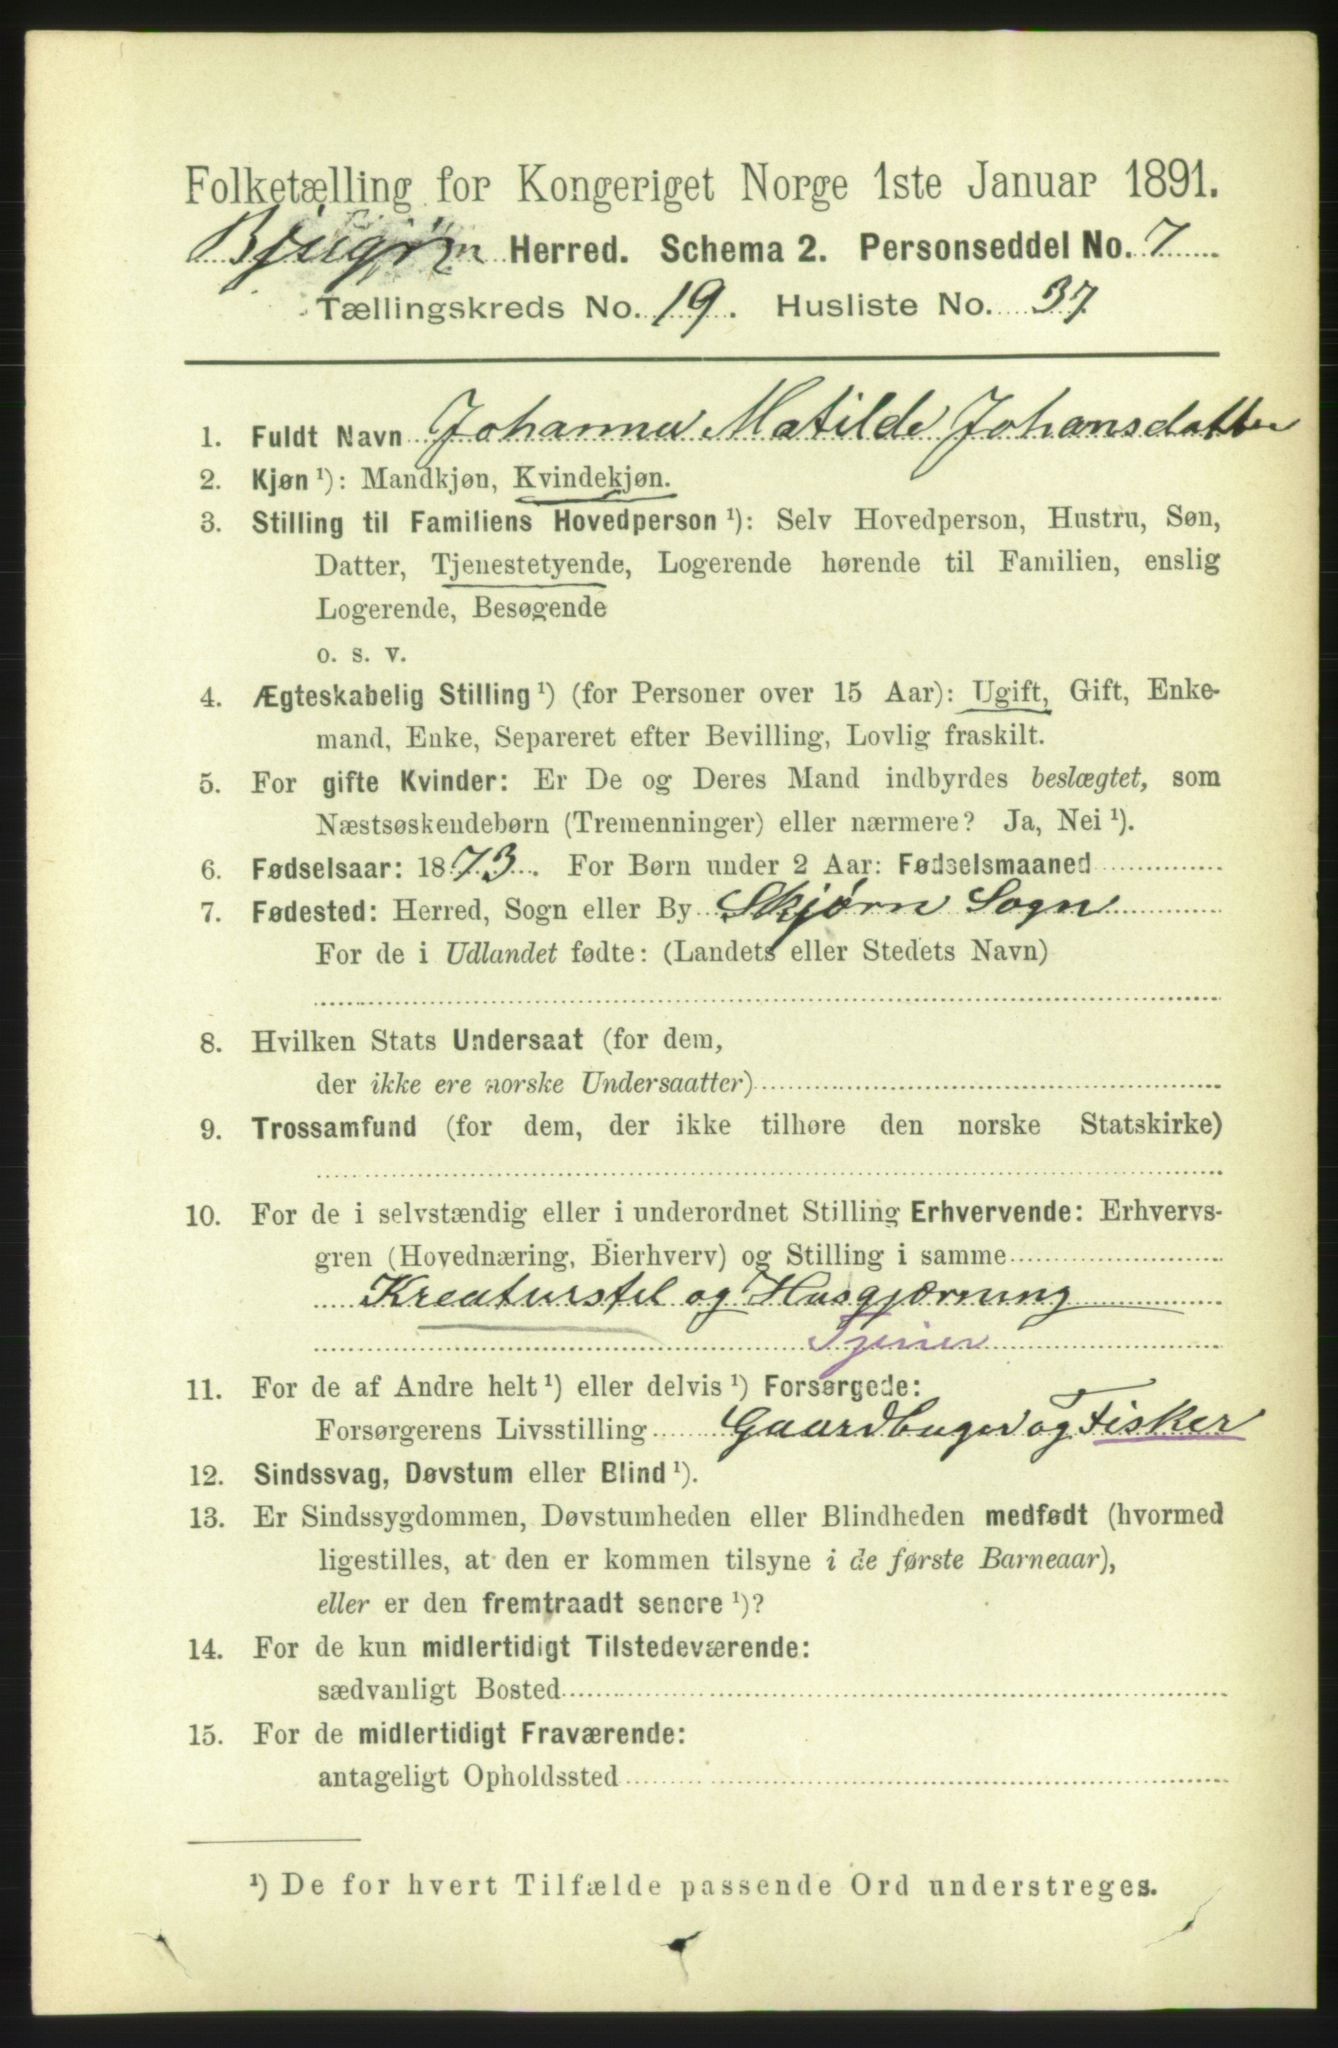 Folketælling for Kongeriget Norge 1ste Januar 1891.
Bjugn Herred. Schema 2. Personseddel No. 7
Tællingskreds No. 19. Husliste No. 37
1. Fuldt Navn Johanna Matilde Johansdatter
2. Kjøn ¹): Mandkjøn, Kvindekjøn.
3. Stilling til Familiens Hovedperson ¹): Selv Hovedperson, Hustru, Søn,
Datter, Tjenestetyende, Logerende hørende til Familien, enslig
Logerende, Besøgende
o. s. v.
4. Ægteskabelig Stilling ¹) (for Personer over 15 Aar): Ugift, Gift, Enke-
mand, Enke, Separeret efter Bevilling, Lovlig fraskilt.
5. For gifte Kvinder: Er De og Deres Mand indbyrdes beslægtet, som
Næstsøskendebørn (Tremenninger) eller nærmere? Ja, Nei ¹).
6. Fødselsaar: 1873. For Børn under 2 Aar: Fødselsmaaned
7. Fødested: Herred, Sogn eller By Skjørn Sogn
For de i Udlandet fødte: (Landets eller Stedets Navn)
8. Hvilken Stats Undersaat (for dem,
der ikke ere norske Undersaatter)
9. Trossamfund (for dem, der ikke tilhøre den norske Statskirke)
10. For de i selvstændig eller i underordnet Stilling Erhvervende: Erhvervs-
gren (Hovednæring, Bierhverv) og Stilling i samme
Kreaturstel og Husgjærning
Tjener
11. For de af Andre helt ¹) eller delvis ¹) Forsørgede:
Forsørgerens Livsstilling Gaardbruger og Fisker
12. Sindssvag, Døvstum eller Blind ¹).
13. Er Sindssygdommen, Døvstumheden eller Blindheden medfødt (hvormed
ligestilles, at den er kommen tilsyne i de første Barneaar),
eller er den fremtraadt senere ¹)?
14. For de kun midlertidigt Tilstedeværende:
sædvanligt Bosted
15. For de midlertidigt Fraværende:
antageligt Opholdssted
¹) De for hvert Tilfælde passende Ord understreges.